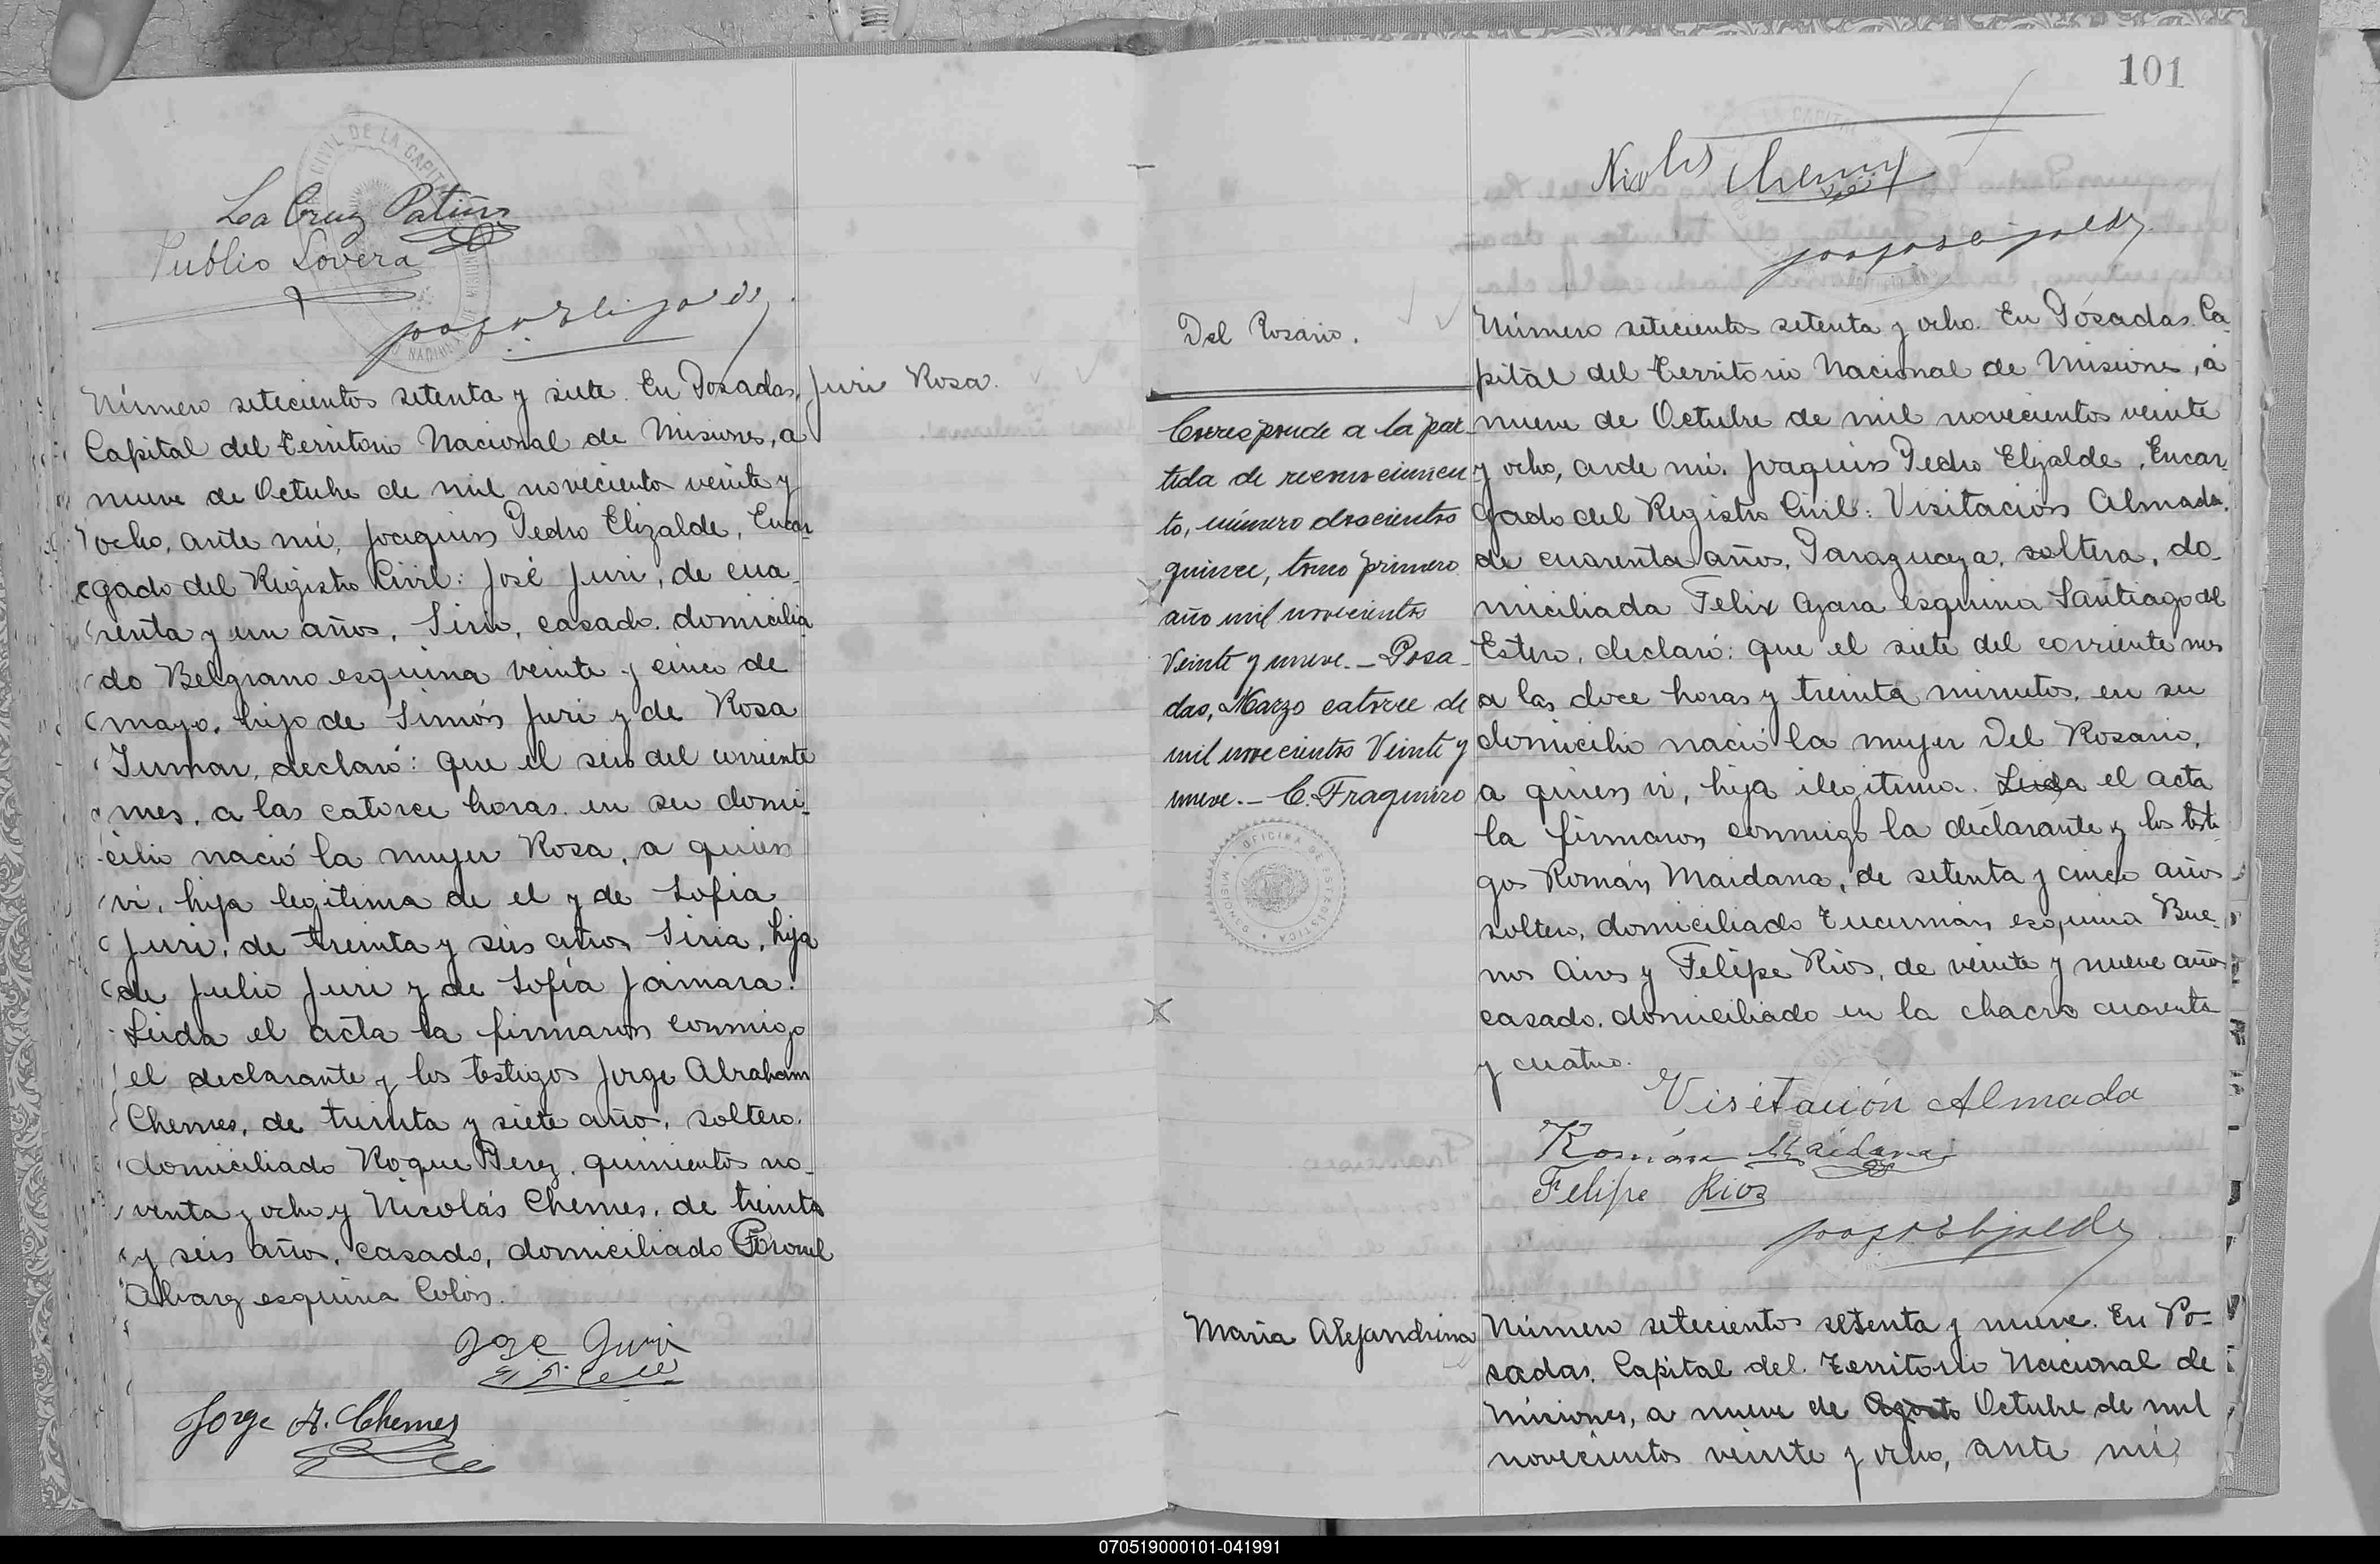 La Cruz Patiño
Publio Lovera
Juri Rosa.
Número setecientos setenta y siete. En Posadas,
Capital del Territorio Nacional de Misiones, a
nueve de Octubre de mil novecientos veinte y
ocho, ante mí, Joaquin Pedro Elizalde, Encar
gado del Registro Civil: José Juri, de cua-
renta y un años, Sirio, casado, domicilia
do Belgrano esquina veinte y cinco de
mayo, hijo de Simón Juri y de Rosa
declaró: que el seis del corriente
mes, a las catorce horas, en su domi-
cilio nació la mujer Rosa, a quien
vi, hija legitima de el y de Sofia
Juri, de treinta y seis años Siria, hija
de Julio Juri y de Sofía Jaimara.
Leida el acta la firmaron conmigo
el declarante y los testigos Jorge Abraham
Chemes, de treinta y siete años, soltero,
domiciliado Roque Perez, quinientos no-
venta y ocho y Nicolás Chemes, de treinta
y seis años, casado, domiciliado Coronel
Alvarez esquina Colón.
Jose Juri
Jorge A. Chemes
101
Nicolas Chemes
Del Rosario.
Corresponde a la par-
tida de reconocimien
to, número doscientos
quince, tomo primero
año mil novecientos
Veinte y nueve. - Posa-
das, Marzo catorce de
mil novecientos Veinte y
nueve. - C. Fragueiro
OFICINA DE ESTADISTICA
Número setecientos setenta y ocho. En Posadas Ca
pital del Territorio Nacional de Misiones, á
nueve de Octubre de mil novecientos veinte
y ocho, ante mí, Joaquin Pedro Elizalde, Encar
gado del Registro Civil: Visitación Almada,
de cuarenta años, Paraguaya, soltera, do-
miciliada Felix Azara esquina Santiago del
Estero, declaró: que el siete del corriente mes
a las doce horas y treinta minutos, en su
domicilio nació la mujer Del Rosario,
a quien vi, hija ilegitima. Leida el acta
la firmaron conmigo la declarante y los testi-
gos Román Maidana, de setenta y cinco años
soltero, domiciliado Tucumán esquina Bue-
nos Aires y Felipe Rios, de veinte y nueve años
casado, domiciliado en la chacra cuarenta
y cuatro.
Visitación Almada
Román Maidana
Felipe Rios
María Alejandrina
Número setecientos setenta y nueve. En Po-
sadas, Capital del Territorio Nacional de
Misiones, a nueve de Agosto Octubre de mil
novecientos veinte y ocho, ante mí,
070519000101-041991